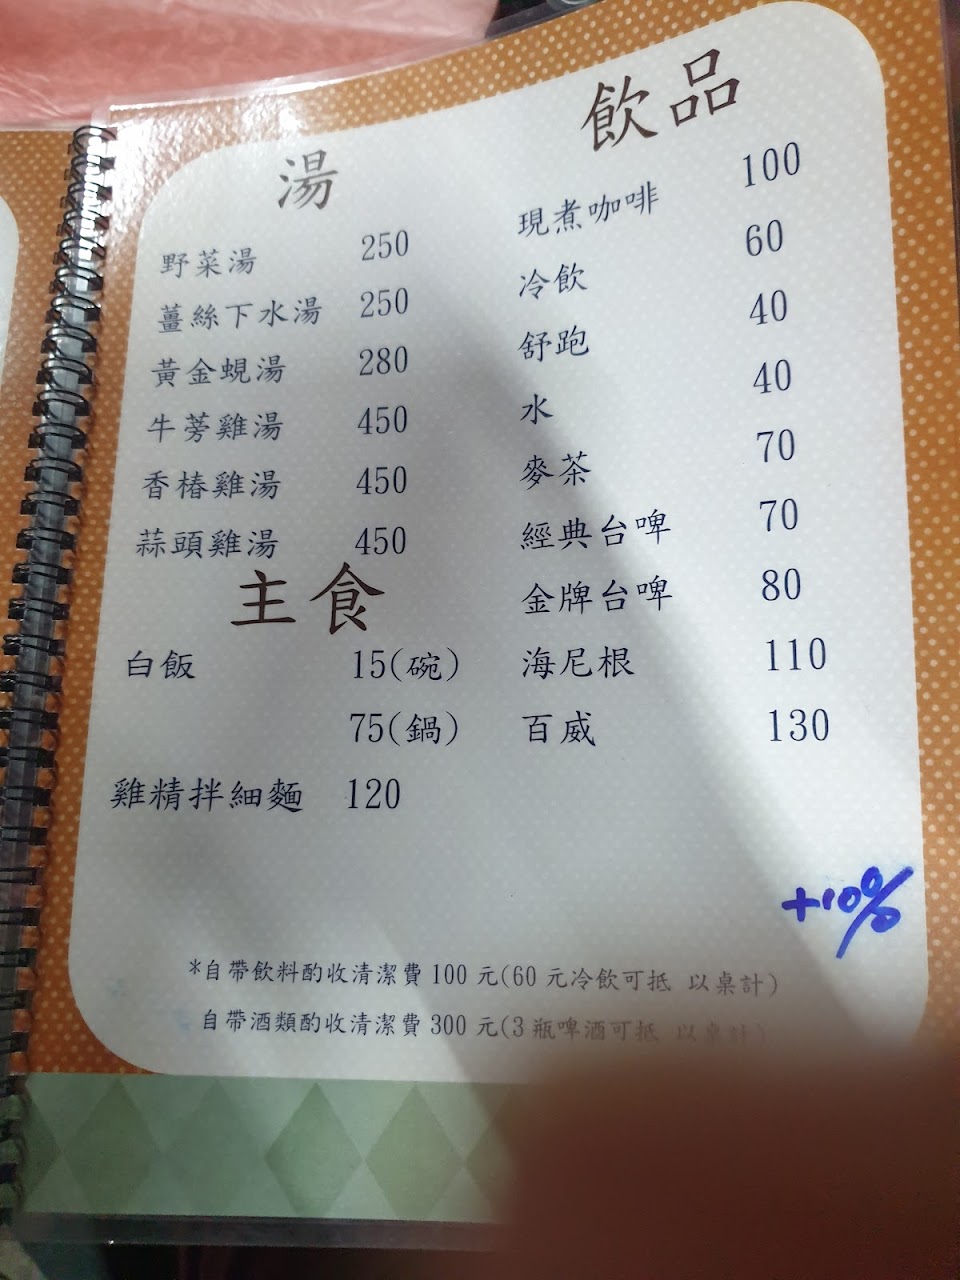 湯
野菜湯 250
薑絲下水湯 250
黃金蜆湯 280
牛蒡雞湯 450
香椿雞湯 450
蒜頭雞湯 450
主食
白飯 15(碗)
75(鍋)
雞精拌細麵 120
飲品
現煮咖啡 100
冷飲 60
舒跑 40
水 40
麥茶 70
經典台啤 70
金牌台啤 80
海尼根 110
百威 130
+10%
*自帶飲料酌收清潔費 100 元(60 元冷飲可抵 以桌計)
自帶酒類酌收清潔費 300 元(3 瓶啤酒可抵 以桌計)